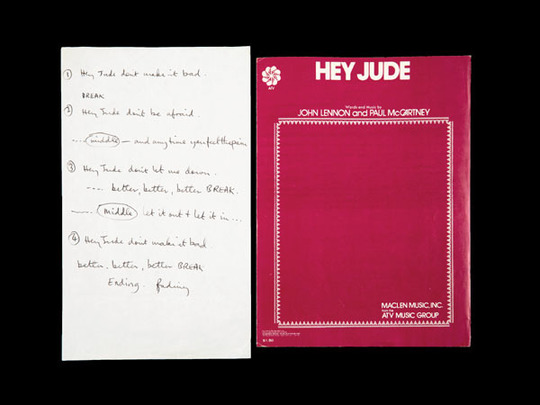 ① Hey Jude dont make it bad.
BREAK
② Hey Jude don't be afraid.
.... middle — and anytime you feel the pain
③ Hey Jude don't let me down.
---- better, better, better BREAK.
middle let it out & let it in ...
④ Hey Jude dont make it bad
better, better, better BREAK
Ending. fading
HEY JUDE
ATV
Words and Music by
JOHN LENNON and PAUL McCARTNEY
MACLEN MUSIC, INC.
ATV MUSIC GROUP